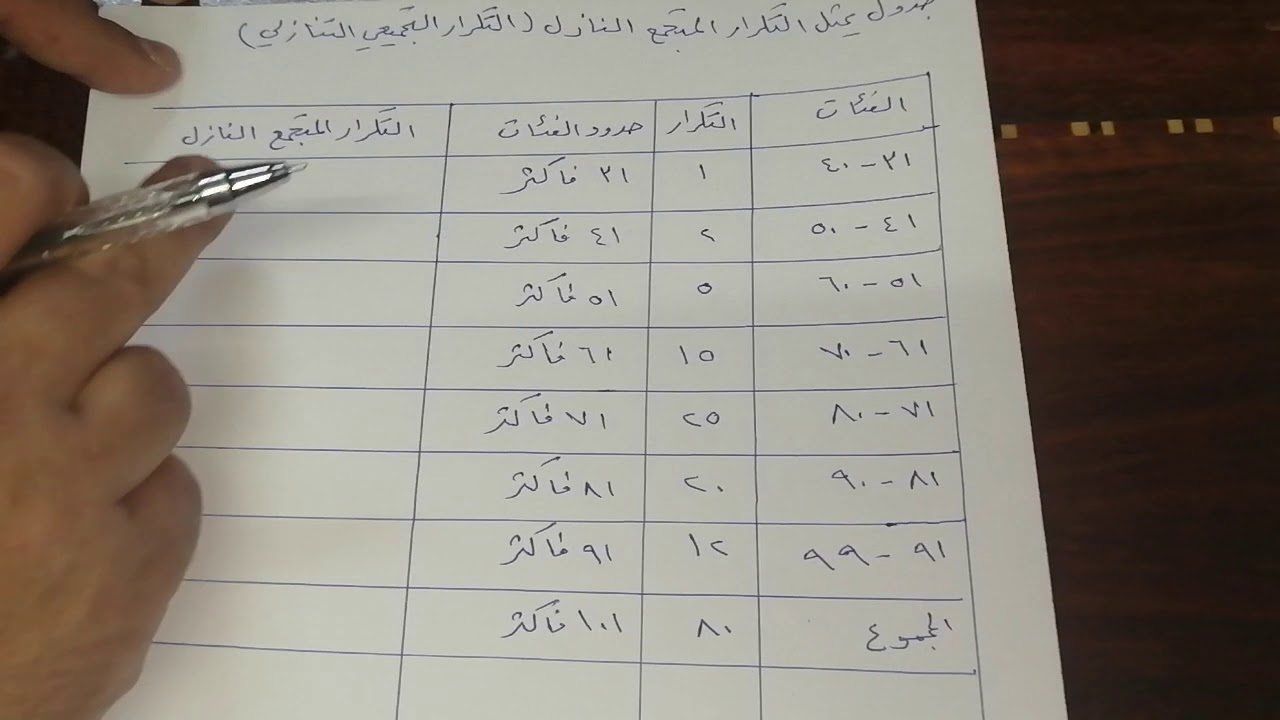 جدول يمثل التكرار المتجمع النازل (التكرار التجميعي التنازلي)
الفئات التكرار حدود الفئات التكرار المتجمع النازل
٣١ - ٤٠ ١ ٣١ فاكثر
٤١ - ٥٠ ٢ ٤١ فاكثر
٥١ - ٦٠ ٥ ٥١ فاكثر
٦١ - ٧٠ ١٥ ٦١ فاكثر
٧١ - ٨٠ ٢٥ ٧١ فاكثر
٨١ - ٩٠ ٢٠ ٨١ فاكثر
٩١ - ٩٩ ١٢ ٩١ فاكثر
المجموع ٨٠ ١٠١ فاكثر